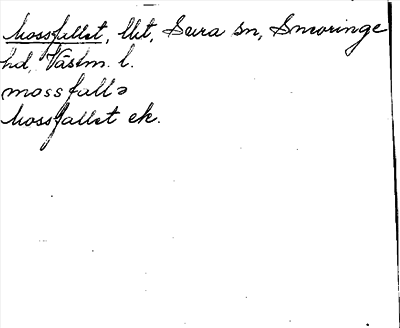 Mossfallet, lht, Sura sn, Snevringe
hd, Västm. l.
mossfallə
Mossfallet ek.